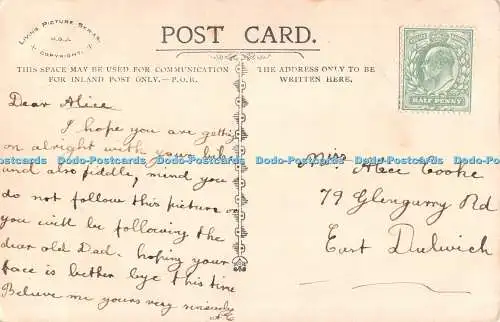 LIVING PICTURE SERIES.
COPYRIGHT.
POST CARD.
THIS SPACE MAY BE USED FOR COMMUNICATION
FOR INLAND POST ONLY.—P.O.R.
THE ADDRESS ONLY TO BE
WRITTEN HERE.
POSTAGE
REVENUE
HALF PENNY
Dear Alice
I hope you are getting
on alright with your bike
and also fiddle, mind you
do not follow this picture or
you will be following the
dear old Dad. hoping your
face is better bye this time
Believe me yours very sincerely
Miss Alice Cooke
79 Glengarry Rd
East Dulwich
Dodo-Postcards Dodo-Postcards Dodo-Postcards Dodo-Postcards